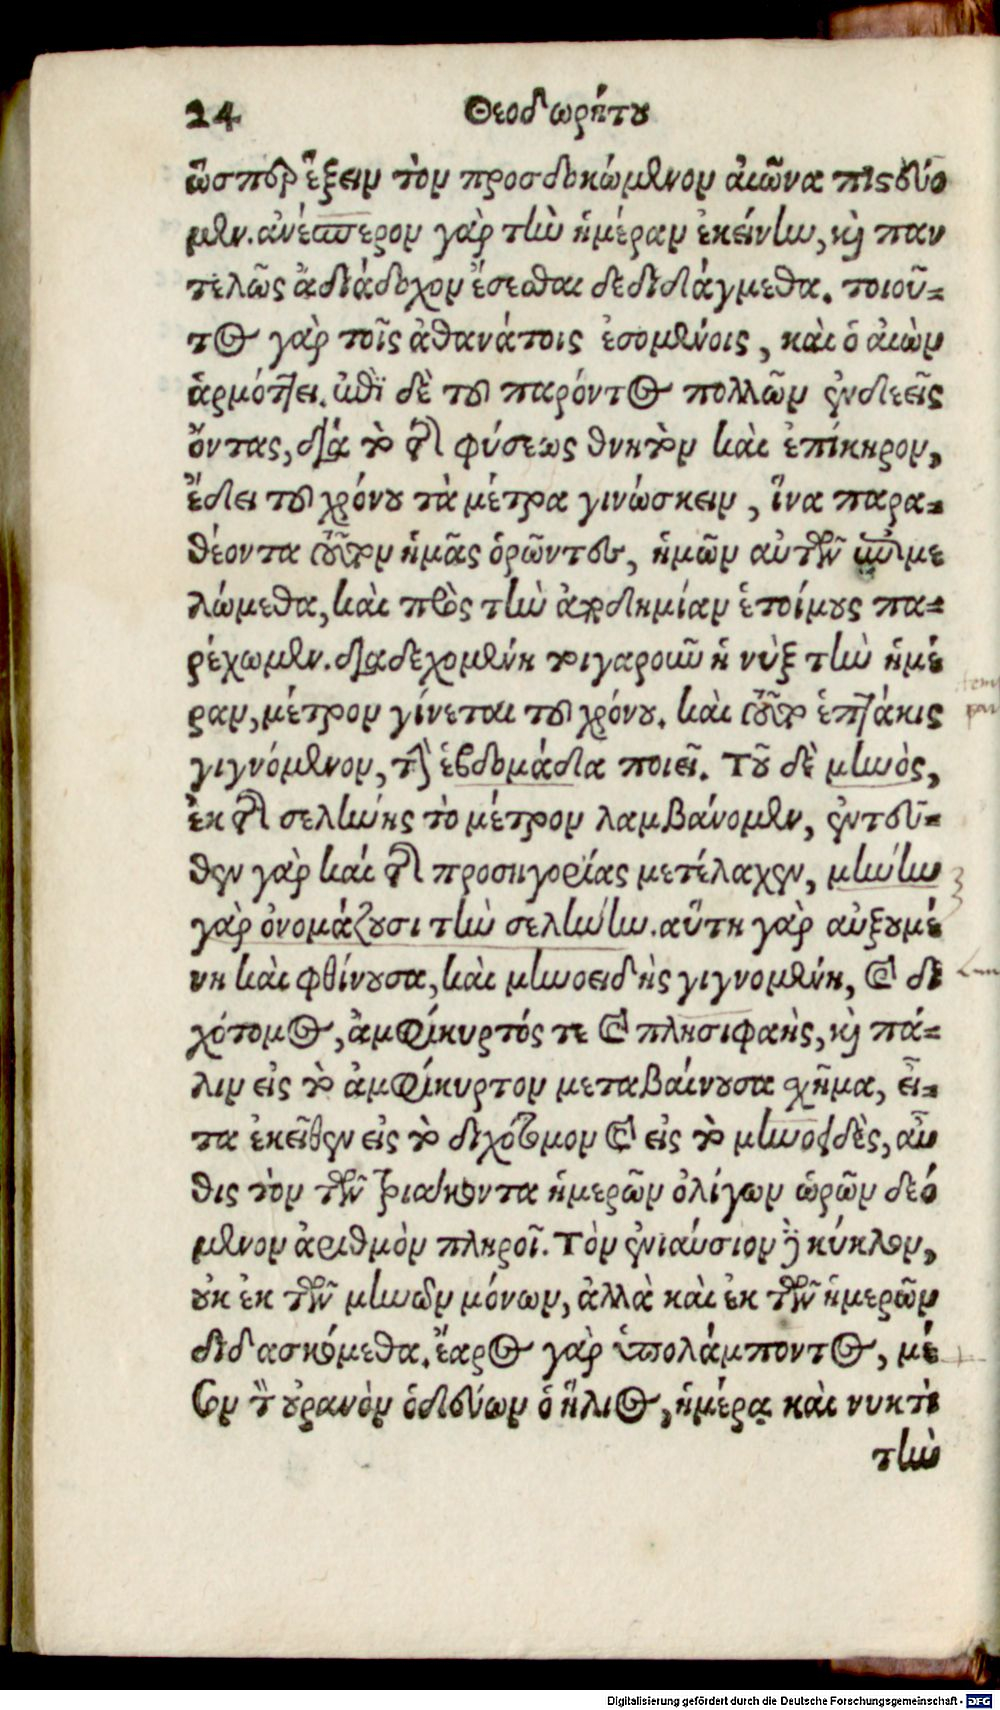 24 Θεοδωρήτου
ὥσπερ ἕξειν τὸν προσδοκώμενον αἰῶνα πιστεύο
μεν. ἀνέσπερον γὰρ τὴν ἡμέραν ἐκείνην, καὶ παν
τελῶς ἀδιάδοχον ἔσεσθαι δεδιδάγμεθα. τοιοῦ-
τος γὰρ τοῖς ἀθανάτοις ἐσομένοις, καὶ ὁ αἰὼν
ἁρμόττει. ἐπὶ δὲ τοῦ παρόντος πολλῶν ἐνδεεῖς
ὄντας, διὰ τὸ τῆς φύσεως θνητὸν καὶ ἐπίκηρον,
ἔδει τοῦ χρόνου τὰ μέτρα γινώσκειν, ἵνα παρα-
θέοντα τοῦτον ἡμᾶς ὁρῶντες, ἡμῶν αὐτῶν ἐπιμε
λώμεθα, καὶ πρὸς τὴν ἀποδημίαν ἑτοίμους πα-
ρέχωμεν. διαδεχομένη τοιγαροῦν ἡ νὺξ τὴν ἡμέ
ραν, μέτρον γίνεται τοῦ χρόνου. καὶ τοῦτο ἑπτάκις
γιγνόμενον, τὴν ἑβδομάδα ποιεῖ. Τοῦ δὲ μηνὸς,
ἐκ τῆς σελήνης τὸ μέτρον λαμβάνομεν, ἐντεῦ-
θεν γὰρ καὶ τῆς προσηγορίας μετέλαχεν, μήνην
γὰρ ὀνομάζουσι τὴν σελήνην. αὕτη γὰρ αὐξουμέ
νη καὶ φθίνουσα, καὶ μηνοειδὴς γιγνομένη, καὶ δι
χότομος, ἀμφίκυρτός τε καὶ πλησιφαὴς, καὶ πά-
λιν εἰς τὸ ἀμφίκυρτον μεταβαίνουσα σχῆμα, εἶ-
τα ἐκεῖθεν εἰς τὸ διχότομον καὶ εἰς τὸ μηνοειδὲς, αὖ
θις τὸν τῶν τριάκοντα ἡμερῶν ὀλίγων ὡρῶν δεό
μενον ἀριθμὸν πληροῖ. Τὸν ἐνιαύσιον δὲ κύκλον,
οὐκ ἐκ τῶν μηνῶν μόνων, ἀλλὰ καὶ ἐκ τῶν ἡμερῶν
διδασκόμεθα. ἔαρος γὰρ ὑπολάμποντος, μέ
σον τὸν οὐρανὸν ὁδεύων ὁ ἥλιος, ἡμέρᾳ καὶ νυκτὶ
τὴν
Digitalisierung gefördert durch die Deutsche Forschungsgemeinschaft - DFG